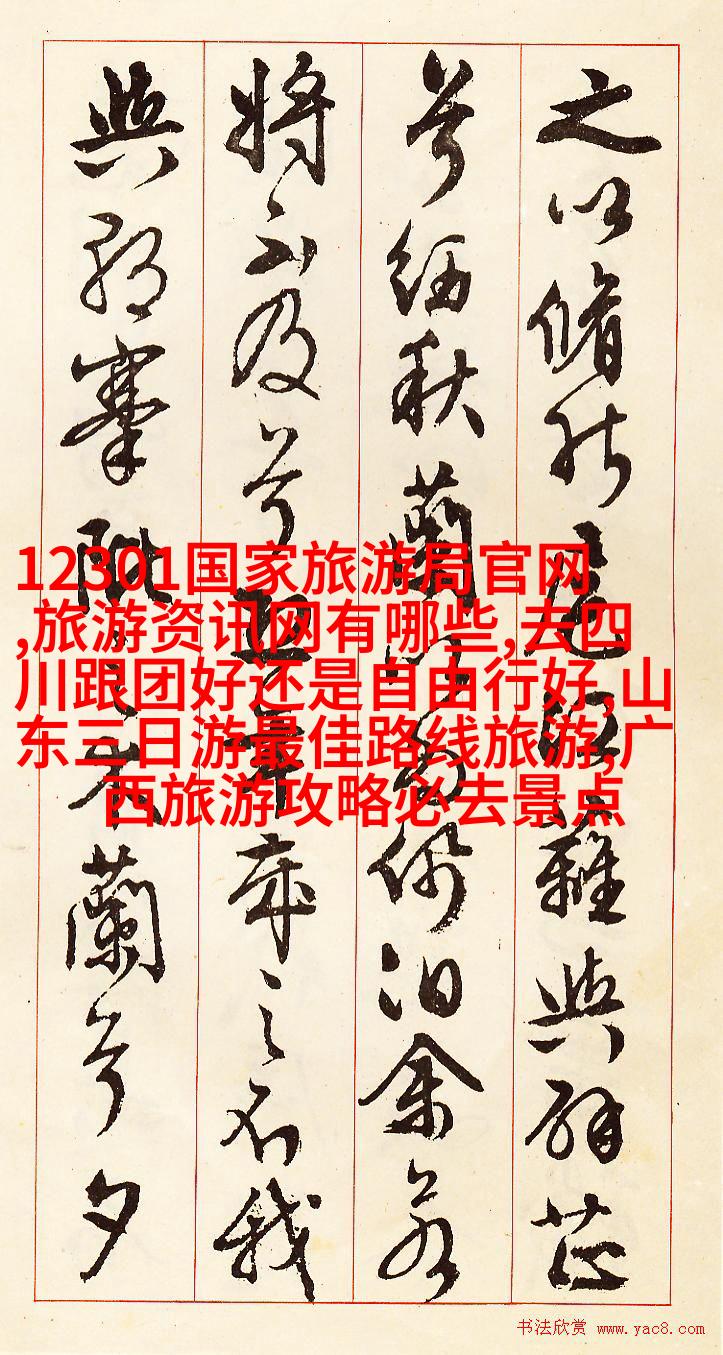 之以脩能扈江蘺與辟芷
兮紉秋蘭以為佩汩余若
將不及兮恐年歲之不我
與朝搴阰之木蘭兮夕
12301国家旅游局官网
,旅游资讯网有哪些,去四
川跟团好还是自由行好,山
东三日游最佳路线旅游,广
西旅游攻略必去景点
书法欣赏 www.yac8.com